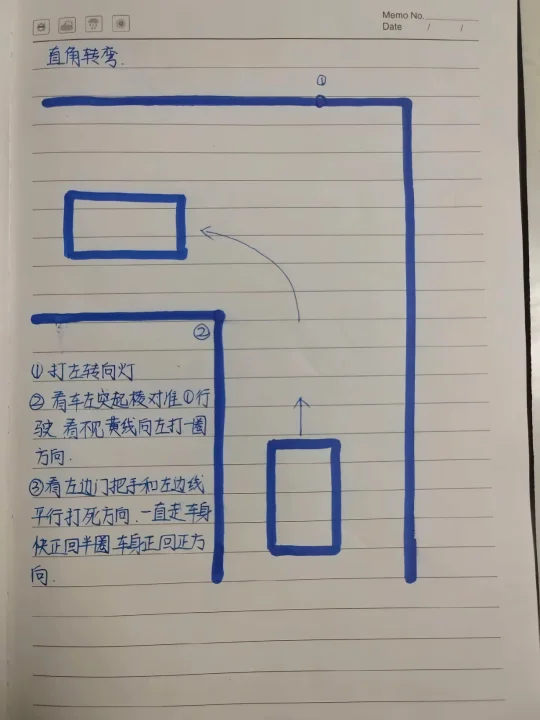 Memo No.
Date / /
直角转弯.
①
②
① 打左转向灯
② 看车左突起棱对准①行
驶 看不见黄线向左打一圈
方向.
③看左边门把手和左边线
平行打死方向.一直走车身
快正回半圈 车身正回正方
向.